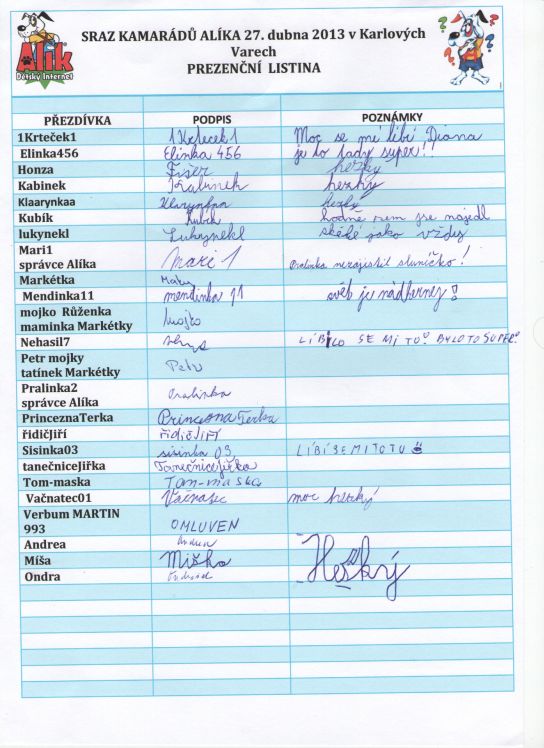 Alík
Dětský Internet
SRAZ KAMARÁDŮ ALÍKA 27. dubna 2013 v Karlových
Varech
PREZENČNÍ LISTINA
PŘEZDÍVKA PODPIS POZNÁMKY
1Krteček1 1Krteček1 Moc se mi líbí Diana
Elinka456 Elinka 456 je to tady super!!
Honza Fišer hezky
Kabinek Kabinek hezky
Klaarynkaa Klarynkaa hezky
Kubík Kubík hodně sem jse najedl
lukynekl Lukynekl skělé jako vždy
Mari1
správce Alíka Mari 1 Pralinka nezajistil sluníčko!
Markétka Maky
Mendinka11 mendinka 11 svět je nádherney!
mojko Růženka
maminka Markétky Mojko
Nehasil7 LÍBILO SE MI TO! BYLO TO SUPER!
Petr mojky
tatínek Markétky Petr
Pralinka2
správce Alíka Pralinka
PrinceznaTerka Princezna Terka
řidičJiří řidičJiří
Sisinka03 sisinka 03 LÍBÍ SE MI TO TU
tanečniceJiřka TanečniceJiřka
Tom-maska Tom-maska
Vačnatec01 Vačnatec moc hezký
Verbum MARTIN
993 OMLUVEN
Andrea Andrea
Míša Miška Hezký
Ondra